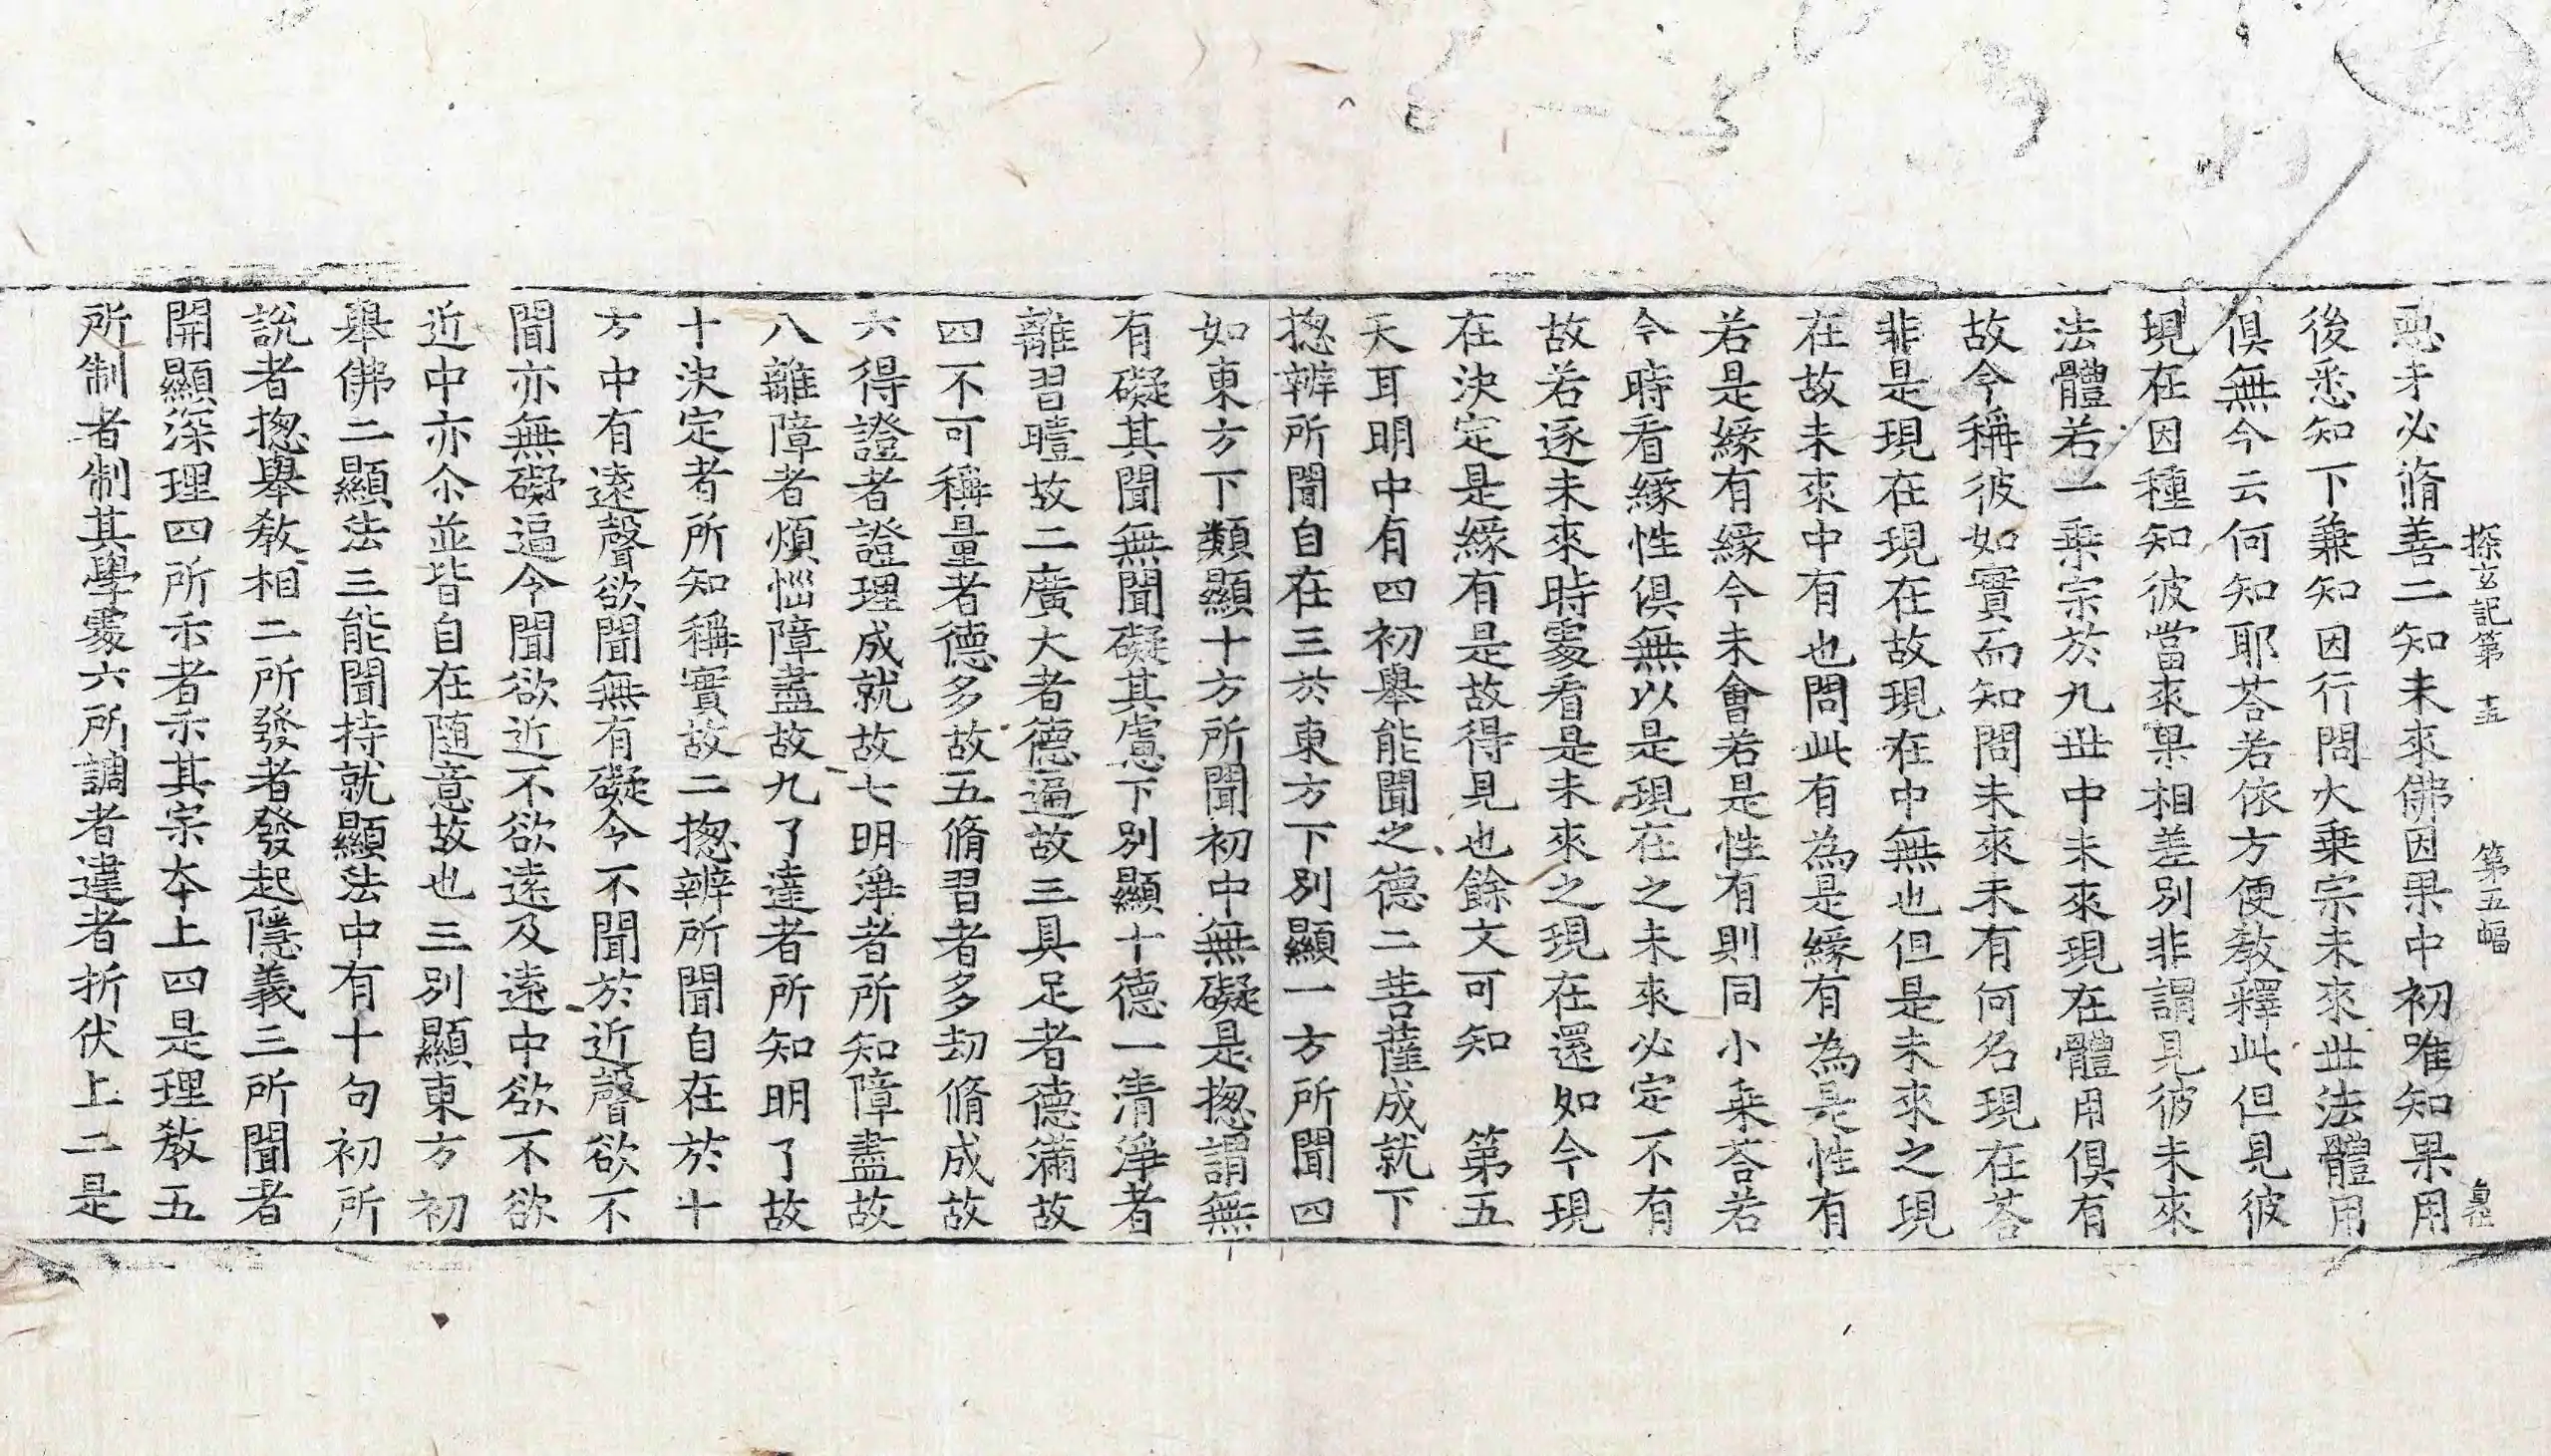 探玄記第十五　第五幅
惡才必脩善二知未來佛因果中初唯知果用
後悉知下兼知因行問大乗宗未來世法體用
俱無今云何知耶荅若依方便教釋此但見彼
現在因種知彼當來果相差別非謂見彼未來
法體若一乗宗於九世中未來現在體用俱有
故今稱彼如實而知問未來未有何名現在荅
非是現在現在故現在中無也但是未來之現
在故未來中有也問此有為是緣有為是性有
若是緣有緣今未會若是性有則同小乗荅若
今時看緣性俱無以是現在之未來必定不有
故若逐未來時䖏看是未來之現在還如今現
在決定是緣有是故得見也餘文可知　第五
天耳明中有四初舉能聞之德二菩薩成就下
揔辨所聞自在三於東方下別顯一方所聞四
如東方下類顯十方所聞初中無礙是揔謂無
有礙其聞無聞礙其處下別顯十德一清淨者
離習曀故二廣大者德遍故三具足者德滿故
四不可稱量者德多故五脩習者多劫脩成故
六得證者證理成就故七明淨者所知障盡故
八離障者煩惱障盡故九了達者所知明了故
十決定者所知稱實故二揔辨所聞自在於十
方中有遠聲欲聞無有礙今不聞於近聲欲不
聞亦無礙逼今聞欲近不欲遠及遠中欲不欲
近中亦尒並皆自在随意故也三別顯東方初
舉佛二顯法三能聞持就顯法中有十句初所
說者揔舉教相二所發者發起隱義三所聞者
開顯深理四所示者示其宗夲上四是理教五
所制者制其學䖏六所調者違者折伏上二是